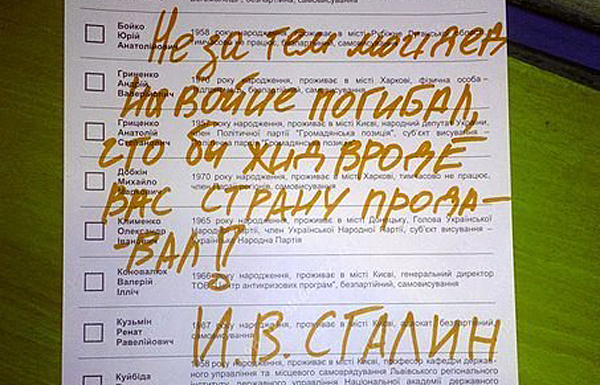 Не за тем мой дед
на войне погибал
что би жид вроде
вас страну прода-
вал!!
И.В. СТАЛИН
Бойко
Юрій
Анатолійович
1958 року народження, проживає в місті
Гриценко
Андрій
Валерійович
1970 року народження, проживає в місті Харкові, фізична особа –
безпартійний, самовисування
Гриценко
Анатолій
Степанович
народження, проживає в місті Києві, народний депутат України,
член Політичної партії "Громадянська позиція", суб'єкт висування –
Добкін
Михайло
Маркович
1970 року народження, проживає в місті Харкові, тимчасово не працює,
член Партії регіонів, самовисування
Клименко
Олександр
Іванович
1965 року народження, проживає в місті Донецьку, Голова Української
Народної Партії, член Української Народної Партії, суб'єкт висування –
Українська Народна Партія
Коновалюк
Валерій
Ілліч
1966 року народження, проживає в місті Києві, генеральний директор
ТОВ "Центр антикризових програм", безпартійний, самовисування
Кузьмін
Ренат
Равелійович
1967 року народження, проживає в місті Києві, безпартійний,
самовисування
Куйбіда
1958 року народження, проживає в місті Києві, професор кафедри держав-
ного управління та місцевого самоврядування Львівського регіонального
інституту державного управління Національної академії державного